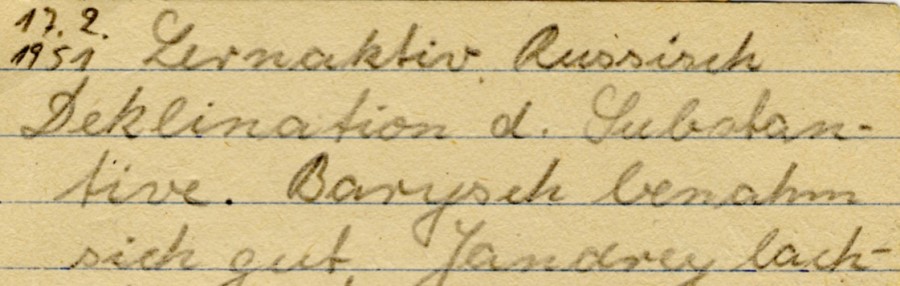 17. 2.
1951 Lernaktiv Russisch
Deklination d. Substan-
tive. Barysch benahm
sich gut, Jandrey lach-